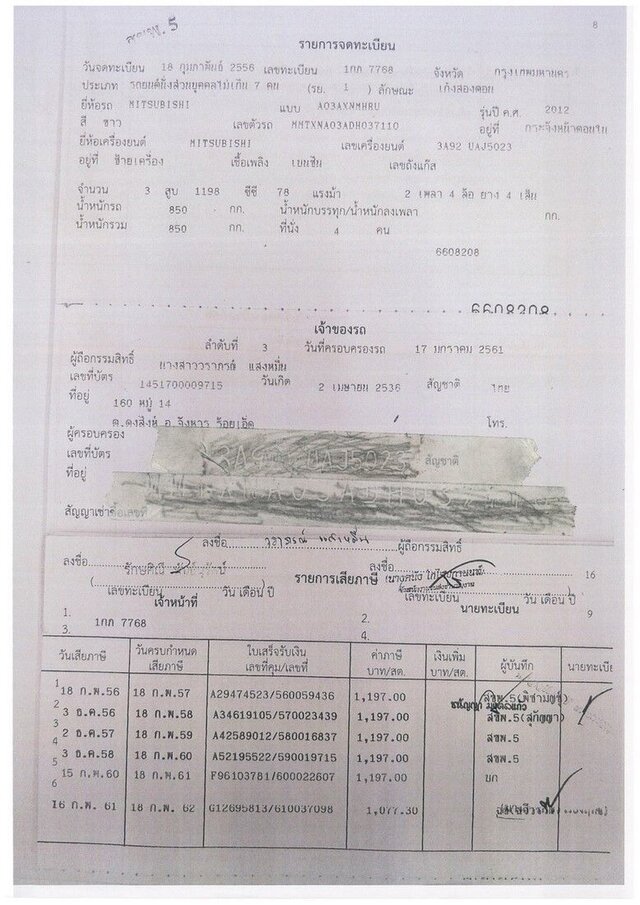 สขพ. 5
8
รายการจดทะเบียน
วันจดทะเบียน 18 กุมภาพันธ์ 2556 เลขทะเบียน 1กก 7768 จังหวัด กรุงเทพมหานคร
ประเภท รถยนต์นั่งส่วนบุคคลไม่เกิน 7 คน (รย. 1 ) ลักษณะ เก๋งสองตอน
ยี่ห้อรถ MITSUBISHI แบบ A03AXNMHRU รุ่นปี ค.ศ. 2012
สี ขาว เลขตัวรถ MMTXNA03ADH037110 อยู่ที่ กระจังหน้าตอนใน
ยี่ห้อเครื่องยนต์ MITSUBISHI เลขเครื่องยนต์ 3A92 UAJ5023
อยู่ที่ ซ้ายเครื่อง เชื้อเพลิง เบนซิน เลขถังแก๊ส
จำนวน 3 สูบ 1198 ซีซี 78 แรงม้า 2 เพลา 4 ล้อ ยาง 4 เส้น
น้ำหนักรถ 850 กก. น้ำหนักบรรทุก/น้ำหนักลงเพลา กก.
น้ำหนักรวม 850 กก. ที่นั่ง 4 คน
6608208
6608208
เจ้าของรถ
ลำดับที่ 3 วันที่ครอบครองรถ 17 มกราคม 2561
ผู้ถือกรรมสิทธิ์ นางสาววราภรณ์ แสงหมื่น
เลขที่บัตร 1451700009715 วันเกิด 2 เมษายน 2536 สัญชาติ ไทย
ที่อยู่ 160 หมู่ 14
ต.ดงสิงห์ อ.จังหาร ร้อยเอ็ด โทร.
ผู้ครอบครอง
เลขที่บัตร 3A92 UAJ5023 สัญชาติ
ที่อยู่
สัญญาเช่าซื้อเลขที่
ลงชื่อ วราภรณ์ แสงหมื่น ผู้ถือกรรมสิทธิ์
ลงชื่อ ลงชื่อ 16
รายการเสียภาษี
เลขทะเบียน วัน เดือน ปี เลขทะเบียน วัน เดือน ปี
เจ้าหน้าที่ นายทะเบียน
1. 1กก 7768 2. 9
3. 4.
วันเสียภาษี วันครบกำหนดเสียภาษี ใบเสร็จรับเงิน เลขที่คุม/เลขที่ ค่าภาษี บาท/สต. เงินเพิ่ม บาท/สต. ผู้บันทึก นายทะเบีย
1 18 ก.พ.56 18 ก.พ.57 A29474523/560059436 1,197.00 สขพ.5
2 3 ธ.ค.56 18 ก.พ.58 A34619105/570023439 1,197.00 สขพ.5
3 2 ธ.ค.57 18 ก.พ.59 A42589012/580016837 1,197.00 สขพ.5
4 3 ธ.ค.58 18 ก.พ.60 A52195522/590019715 1,197.00 สขพ.5
5 15 ก.พ.60 18 ก.พ.61 F96103781/600022607 1,197.00 บก
6 16 ก.พ. 61 18 ก.พ. 62 G12695813/610037098 1,077.30